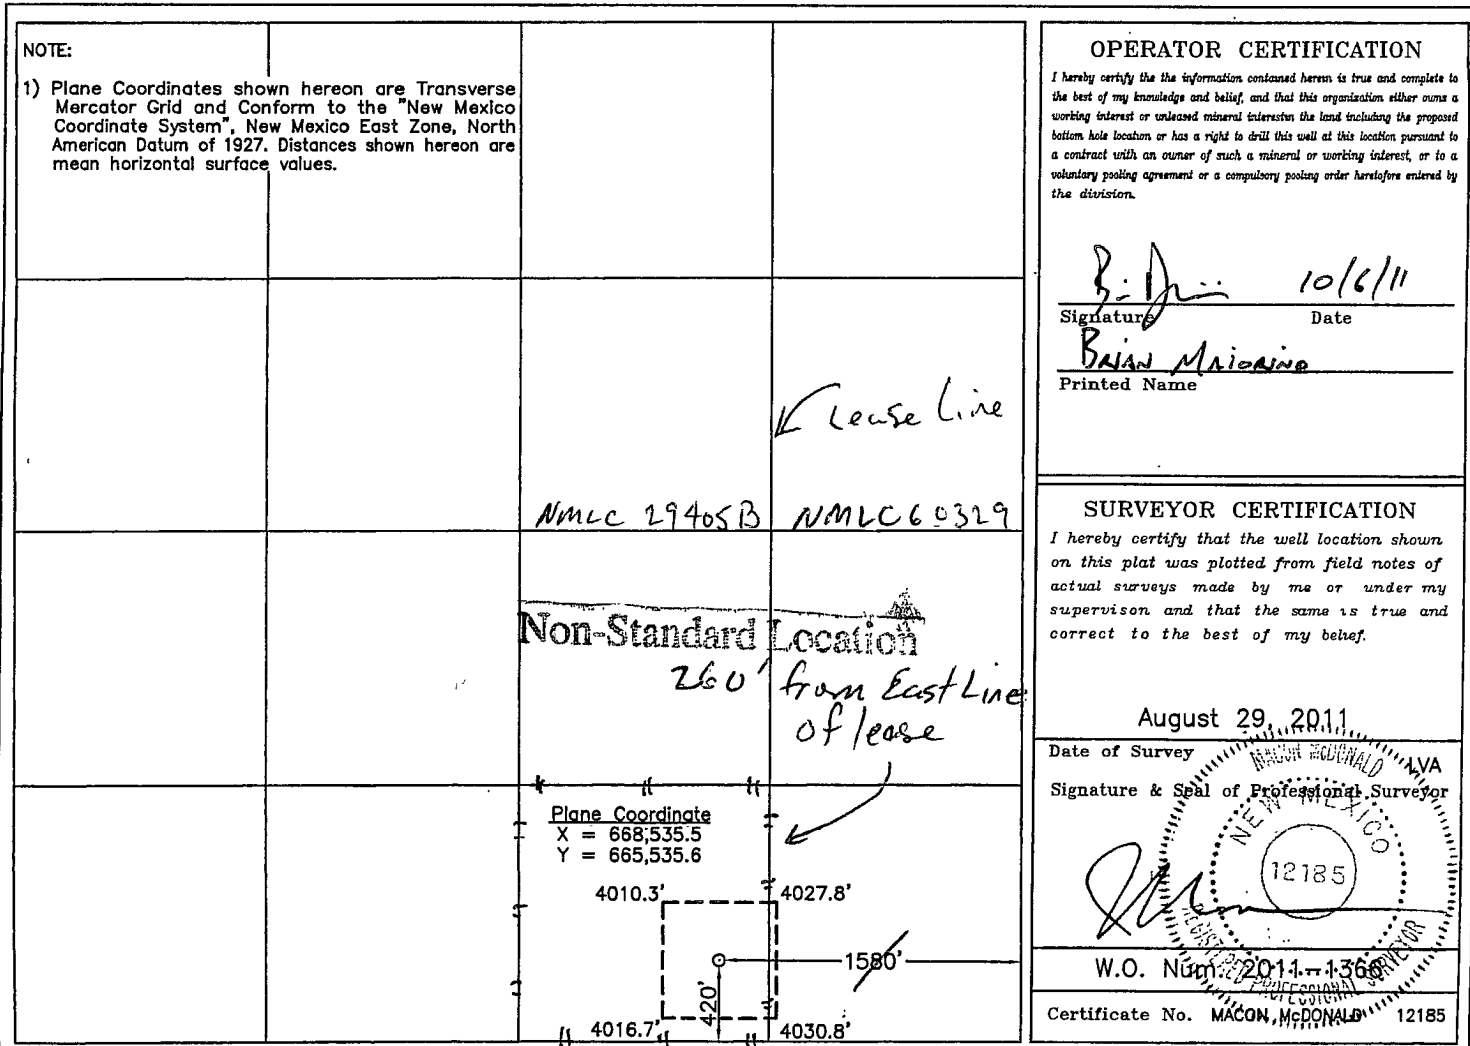 NOTE:
1) Plane Coordinates shown hereon are Transverse
Mercator Grid and Conform to the "New Mexico
Coordinate System", New Mexico East Zone, North
American Datum of 1927. Distances shown hereon are
mean horizontal surface values.
Lease Line
NMLC 29405B NMLC60329
Non-Standard Location
260' from East Line
of lease
Plane Coordinate
X = 668,535.5
Y = 665,535.6
4010.3' 4027.8'
1580'
420'
4016.7' 4030.8'
OPERATOR CERTIFICATION
I hereby certify the the information contained herein is true and complete to
the best of my knowledge and belief, and that this organization either owns a
working interest or unleased mineral interestin the land including the proposed
bottom hole location or has a right to drill this well at this location pursuant to
a contract with an owner of such a mineral or working interest, or to a
voluntary pooling agreement or a compulsory pooling order heretofore entered by
the division.
10/6/11
Signature Date
BRIAN MAIORINO
Printed Name
SURVEYOR CERTIFICATION
I hereby certify that the well location shown
on this plat was plotted from field notes of
actual surveys made by me or under my
supervison and that the same is true and
correct to the best of my belief.
August 29, 2011
Date of Survey LVA
Signature & Seal of Professional Surveyor
MACON McDONALD
NEW MEXICO
12185
REGISTERED PROFESSIONAL SURVEYOR
W.O. Num. 2011-1366
Certificate No. MACON McDONALD 12185